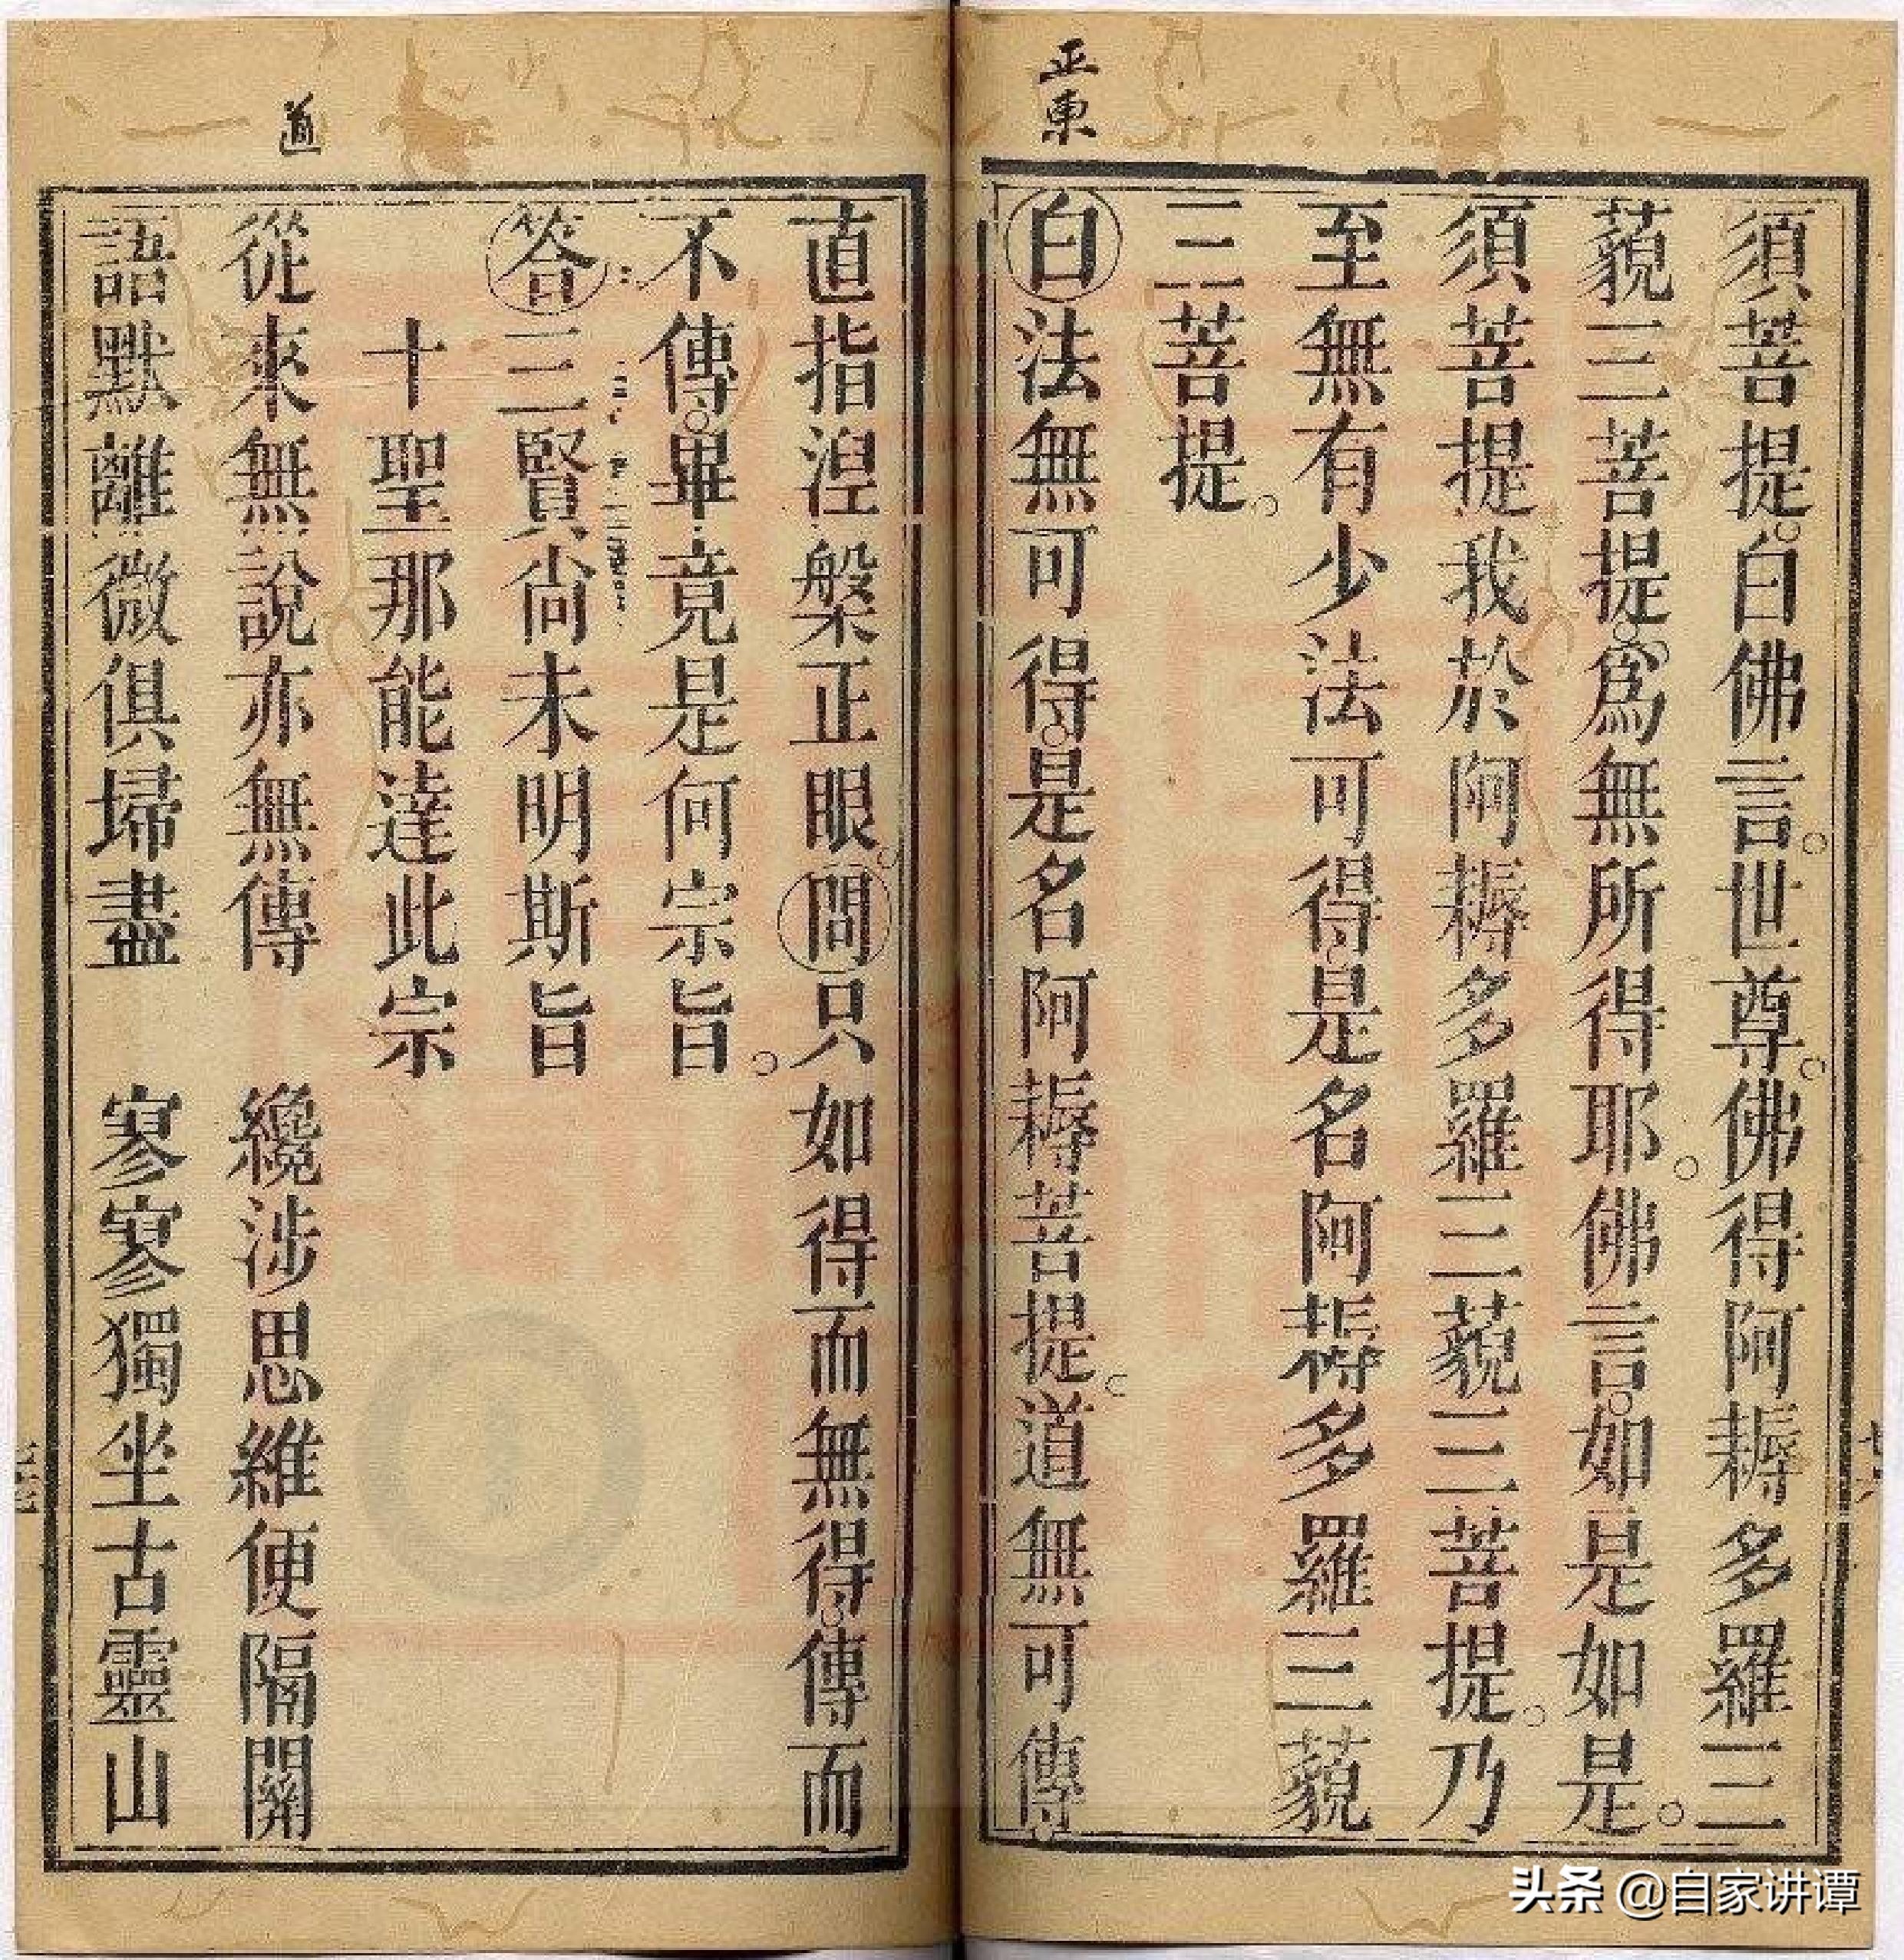 正東
須菩提。白佛言。世尊。佛得阿耨多羅三
藐三菩提。爲無所得耶。佛言。如是如是。
須菩提我於阿耨多羅三藐三菩提。乃
至無有少法可得。是名阿耨多羅三藐
三菩提。
白法無可得。是名阿耨菩提。道無可傳。
道
直指涅槃正眼。問只如得而無得。傳而
不傳。畢竟是何宗旨。
答三賢尚未明斯旨
十聖那能達此宗
從來無說亦無傳 纔涉思維便隔關
語默離微俱埽盡 寥寥獨坐古靈山
头条 @自家讲谭